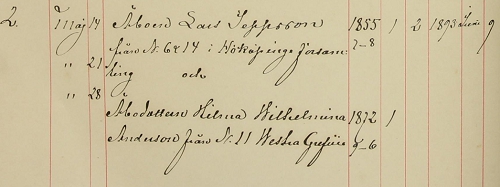 2. Maj 14 Åboen Lars Jeppsson 1855 1 2 1893 Juni 9
från N. 6 & 14 i Nököpinge försam- 7-8
" 21 ling och
" 28
Åbodottern Hilma Wilhelmina 1872 1
Anderson från N. 11 Westra Grefvie 9-6